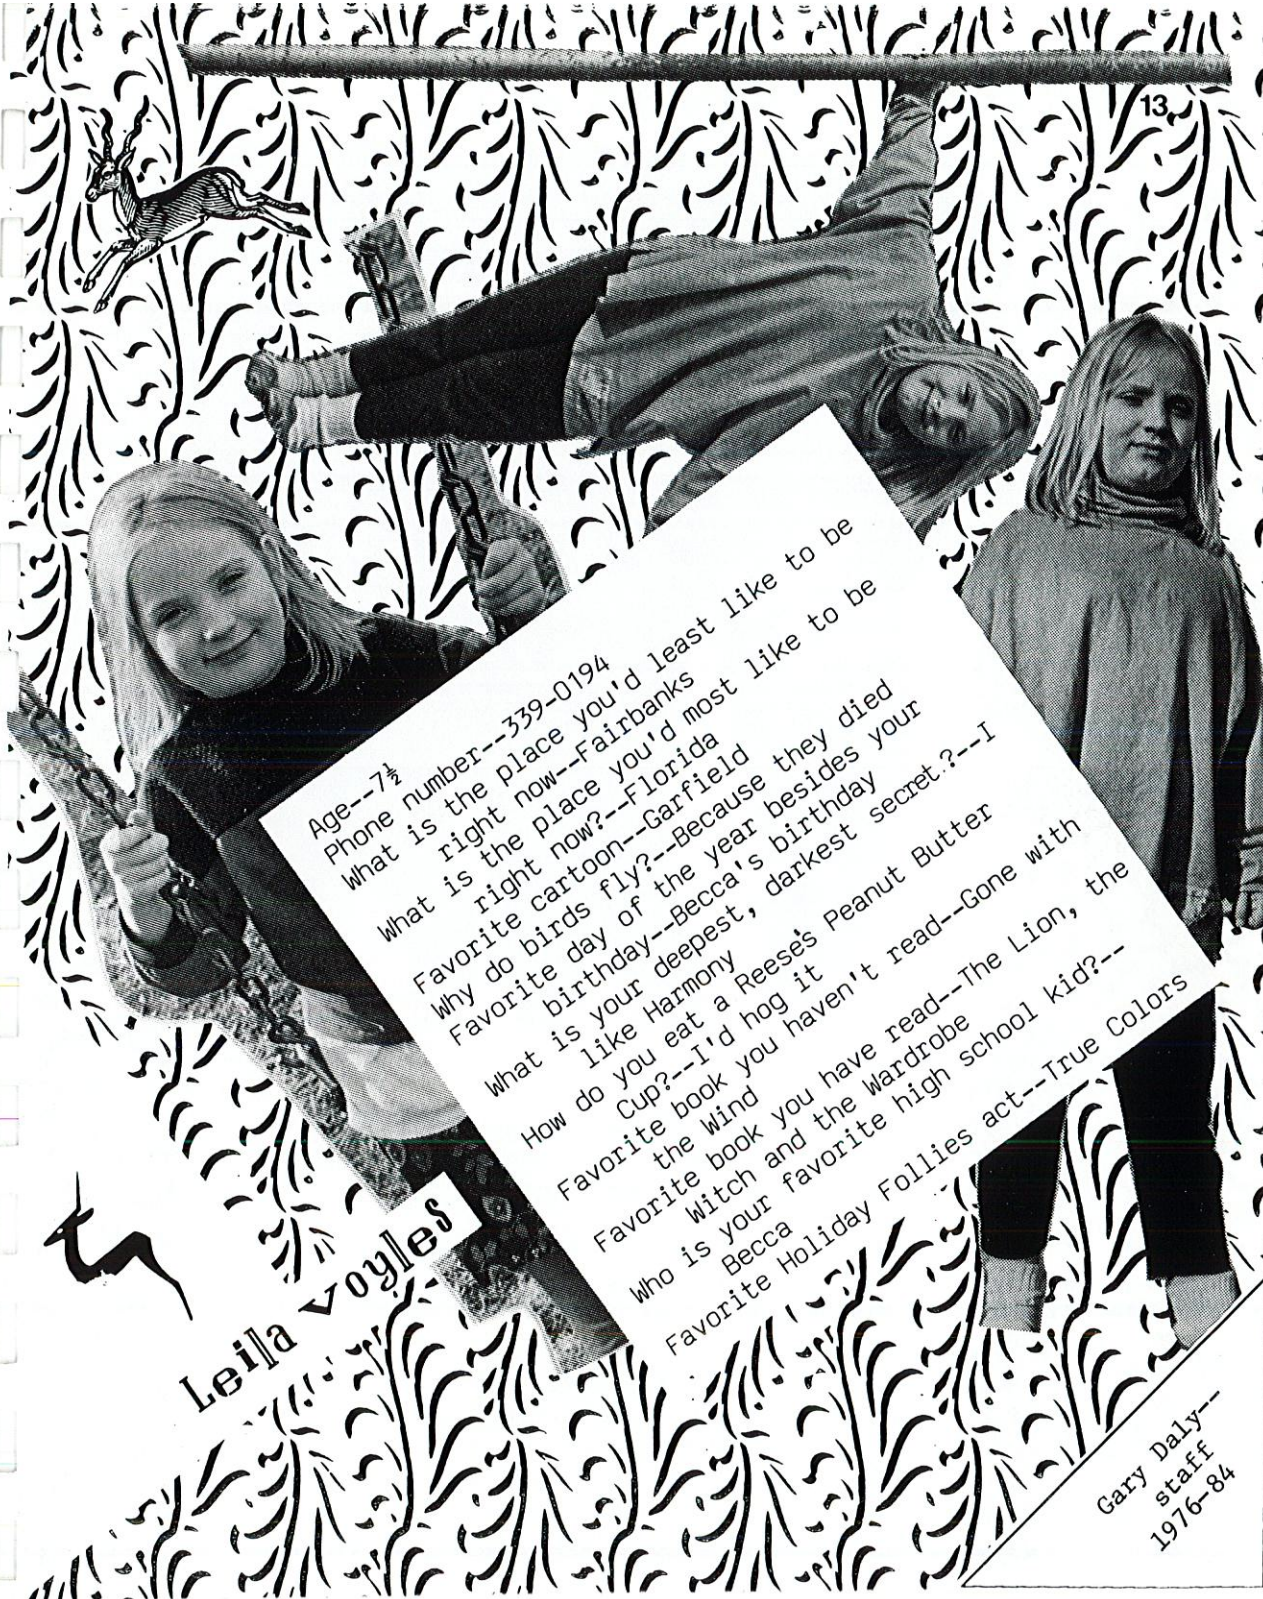 13
Age--7½
Phone number--339-0194
What is the place you'd least like to be
right now--Fairbanks
What is the place you'd most like to be
right now?--Florida
Favorite cartoon--Garfield
Why do birds fly?--Because they died
Favorite day of the year besides your
birthday--Becca's birthday
What is your deepest, darkest secret?--I
like Harmony
How do you eat a Reese's Peanut Butter
Cup?--I'd hog it
Favorite book you haven't read--Gone with
the Wind
Favorite book you have read--The Lion, the
Witch and the Wardrobe
Who is your favorite high school kid?--
Becca
Favorite Holiday Follies act--True Colors
Leila Voyles
Gary Daly--
staff
1976-84